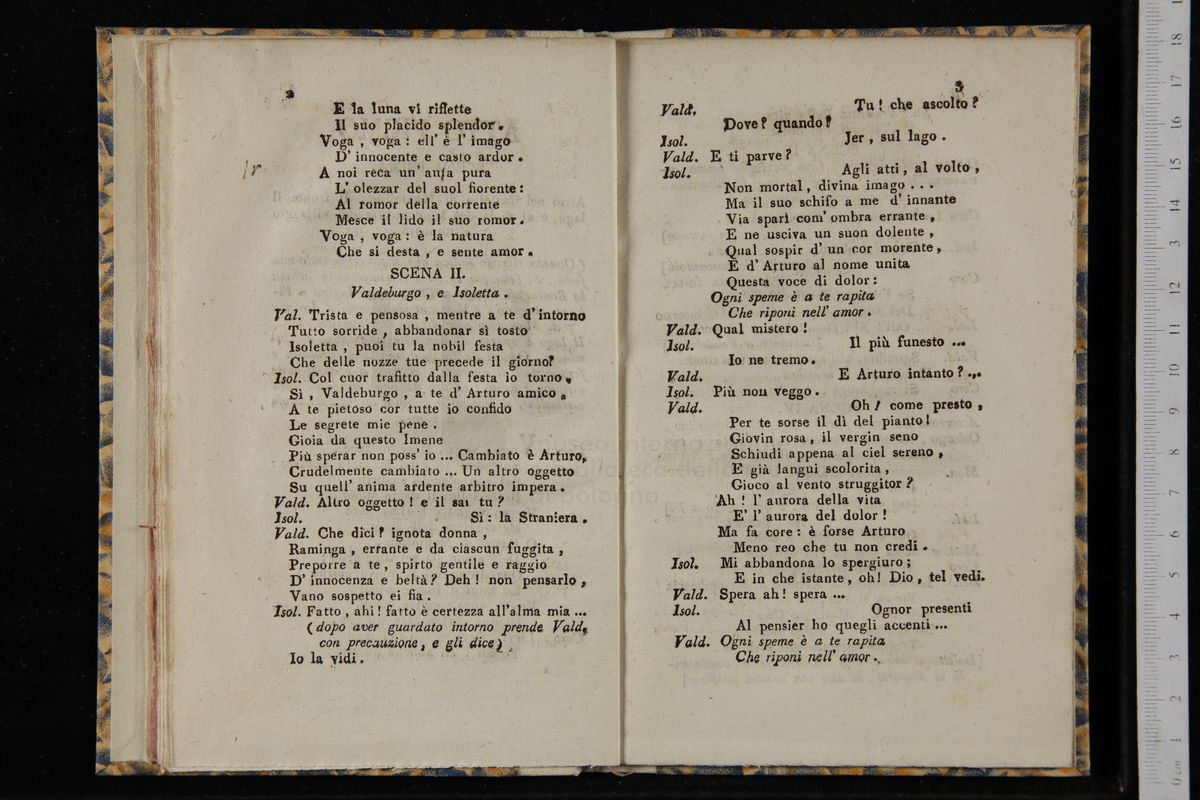 2
E la luna vi riflette
Il suo placido splendor.
Voga , voga : ell' è l' imago
D' innocente e casto ardor .
A noi reca un' aufa pura
lr
L' olezzar del suol fiorente :
Al romor della corrente
Mesce il lido il suo romor .
Voga , voga : è la natura
Che si desta , e sente amor .
SCENA II.
Valdeburgo , e Isoletta .
Val. Trista e pensosa , mentre a te d' intorno
Tutto sorride , abbandonar sì tosto
Isoletta , puoi tu la nobil festa
Che delle nozze tue precede il giorno?
Isol. Col cuor trafitto dalla festa io torno,
Sì , Valdeburgo , a te d' Arturo amico ,
A te pietoso cor tutte io confido
Le segrete mie pene .
Gioia da questo Imene
Più sperar non poss' io ... Cambiato è Arturo,
Crudelmente cambiato ... Un altro oggetto
Su quell' anima ardente arbitro impera .
Vald. Altro oggetto ! e il sai tu ?
Isol. Sì : la Straniera .
Vald. Che dici ? ignota donna ,
Raminga , errante e da ciascun fuggita ,
Preporre a te , spirto gentile e raggio
D' innocenza e beltà ? Deh ! non pensarlo ,
Vano sospetto ei fia .
Isol. Fatto , ahi ! fatto è certezza all'alma mia ...
( dopo aver guardato intorno prende Vald.
con precauzione , e gli dice )
Io la vidi .
3
Vald. Tu ! che ascolto ?
Dove ? quando ?
Isol. Jer , sul lago .
Vald. E ti parve ?
Isol. Agli atti , al volto ,
Non mortal , divina imago . . .
Ma il suo schifo a me d' innante
Via sparì com' ombra errante ,
E ne usciva un suon dolente ,
Qual sospir d' un cor morente ,
E d' Arturo al nome unita
Questa voce di dolor :
Ogni speme è a te rapita
Che riponi nell' amor .
Vald. Qual mistero !
Isol. Il più funesto ...
Io ne tremo .
Vald. E Arturo intanto ? ...
Isol. Più non veggo .
Vald. Oh ! come presto ,
Per te sorse il dì del pianto !
Giovin rosa , il vergin seno
Schiudi appena al ciel sereno ,
E già langui scolorita ,
Gioco al vento struggitor ?
Ah ! l' aurora della vita
E' l' aurora del dolor !
Ma fa core : è forse Arturo
Meno reo che tu non credi .
Isol. Mi abbandona lo spergiuro ;
E in che istante , oh ! Dio , tel vedi.
Vald. Spera ah ! spera ...
Isol. Ognor presenti
Al pensier ho quegli accenti ...
Vald. Ogni speme è a te rapita
Che riponi nell' amor .